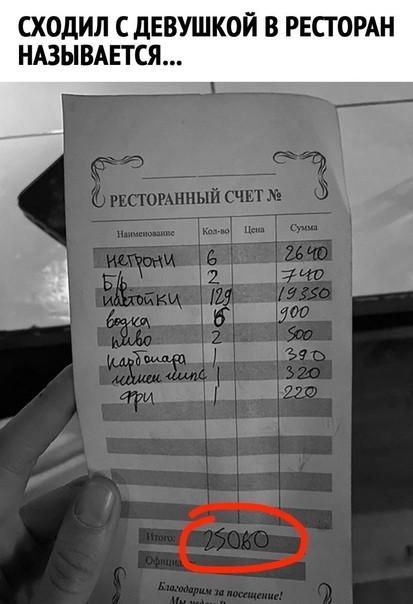 СХОДИЛ С ДЕВУШКОЙ В РЕСТОРАН
НАЗЫВАЕТСЯ...
РЕСТОРАННЫЙ СЧЕТ №
Наименование Кол-во Цена Сумма
негрони 6 2640
Б/ф 2 740
настойки 129 19350
водка 6 900
пиво 2 500
карбонара 1 390
чикен чипс 1 320
фри 1 220
Итого: 25060
Официа
Благодарим за посещение!